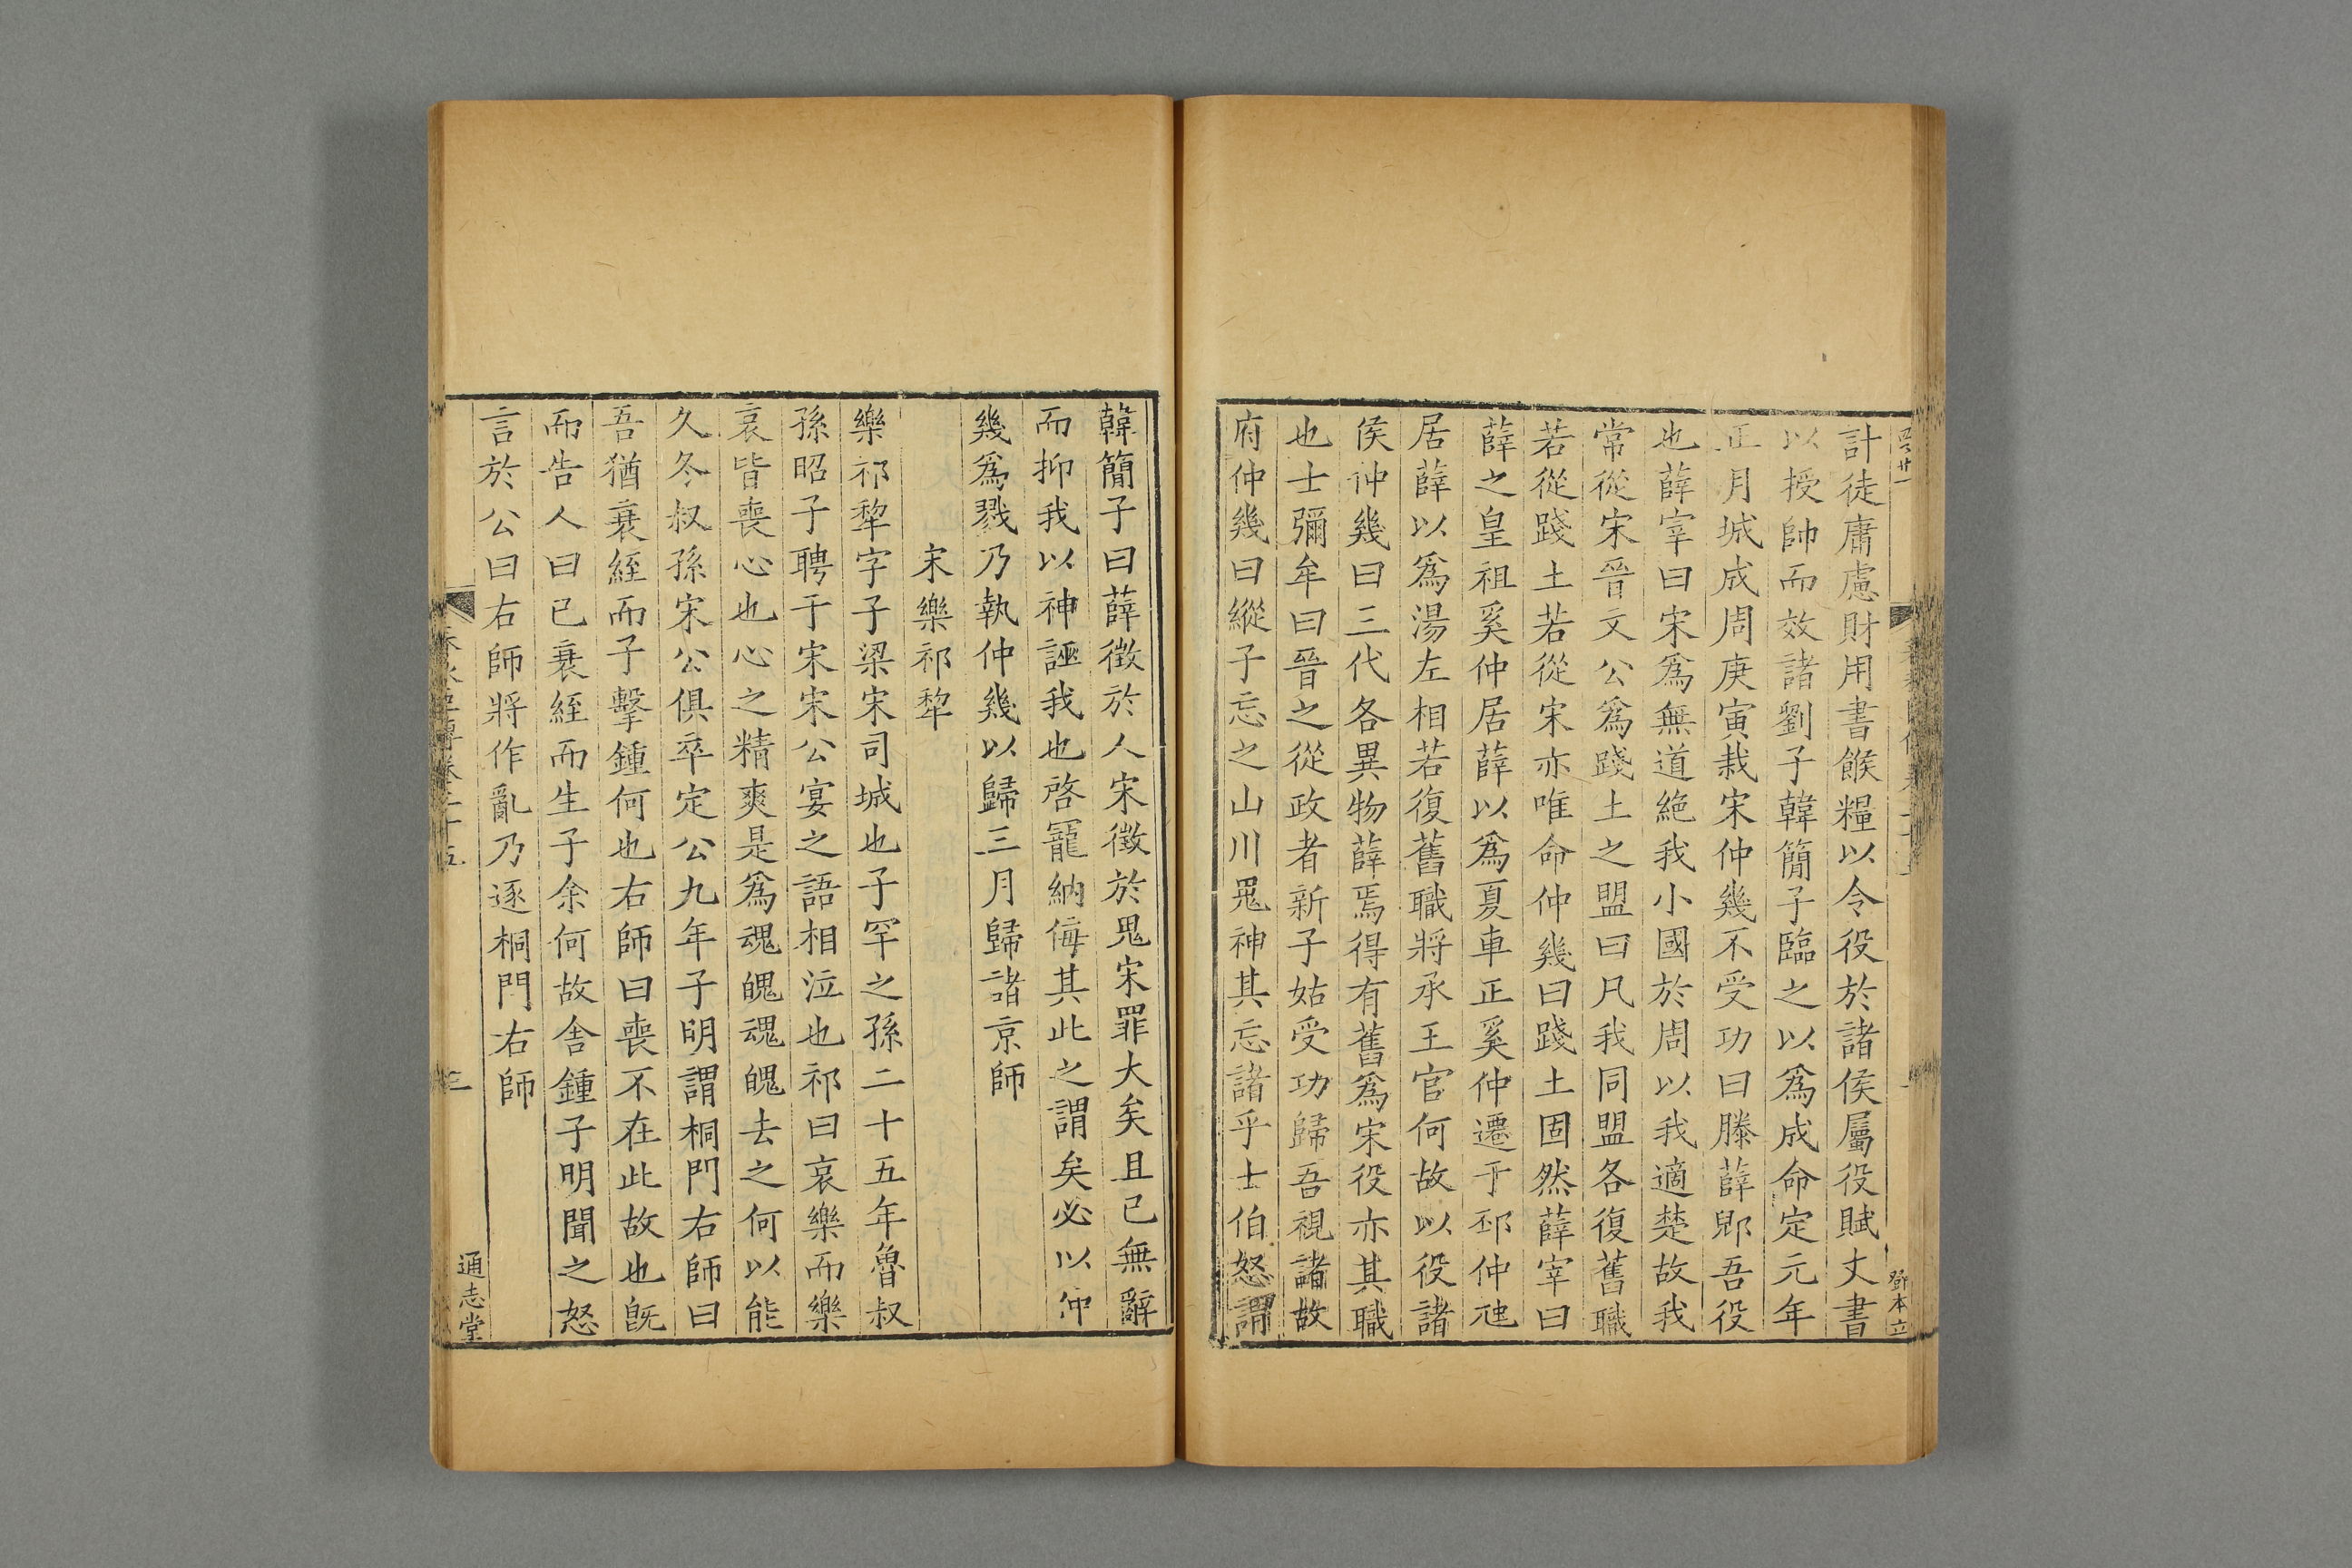 計徒庸慮財用書餱糧以令役於諸侯屬役賦丈書
以授帥而效諸劉子韓簡子臨之以爲成命定元年
正月城成周庚寅栽宋仲幾不受功曰滕薛郳吾役
也薛宰曰宋爲無道絶我小國於周以我適楚故我
常從宋晉文公爲踐土之盟曰凡我同盟各復舊職
若從踐土若從宋亦唯命仲幾曰踐土固然薛宰曰
薛之皇祖奚仲居薛以爲夏車正奚仲遷于邳仲虺
居薛以爲湯左相若復舊職將承王官何故以役諸
侯仲幾曰三代各異物薛焉得有舊爲宋役亦其職
也士彌牟曰晉之從政者新子姑受功歸吾視諸故
府仲幾曰縱子忘之山川鬼神其忘諸乎士伯怒謂
鄧本立
韓簡子曰薛徴於人宋徴於鬼宋罪大矣且已無辭
而抑我以神誣我也啓寵納侮其此之謂矣必以仲
幾爲戮乃執仲幾以歸三月歸諸京師
宋樂祁犂
樂祁犂字子梁宋司城也子罕之孫二十五年魯叔
孫昭子聘于宋宋公宴之語相泣也祁曰哀樂而樂
哀皆喪心也心之精爽是爲魂魄魂魄去之何以能
久冬叔孫宋公俱卒定公九年子明謂桐門右師曰
吾猶衰絰而子擊鍾何也右師曰喪不在此故也旣
而告人曰已衰絰而生子余何故舍鍾子明聞之怒
言於公曰右師將作亂乃逐桐門右師
三
通志堂